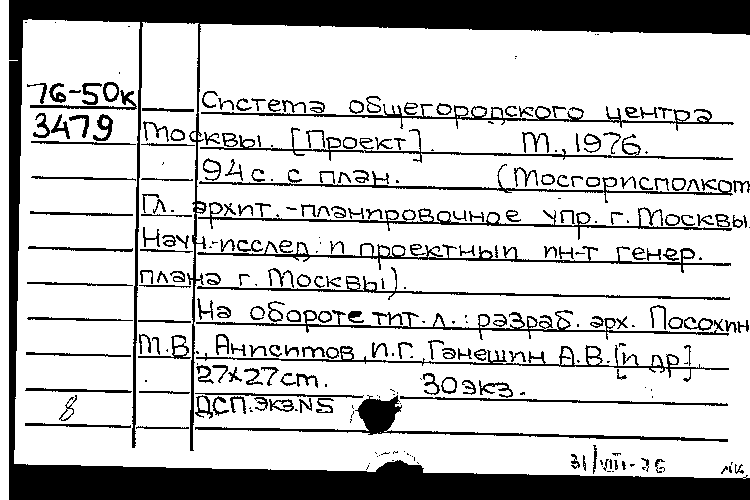 76-50к Система общегородского центра
3479 Москвы. [Проект]. М., 1976.
94 с. с план. (Мосгорисполком
Гл. архит.-планировочное упр. г. Москвы
Науч.-исслед. и проектный ин-т генер.
плана г. Москвы).
На обороте тит. л.: разраб. арх. Посохин
М.В., Анисимов, И.Г., Ганешин А.В. [и др].
27x27cm. 30экз.
8 ДСП.экз.N5
31/VIII-76